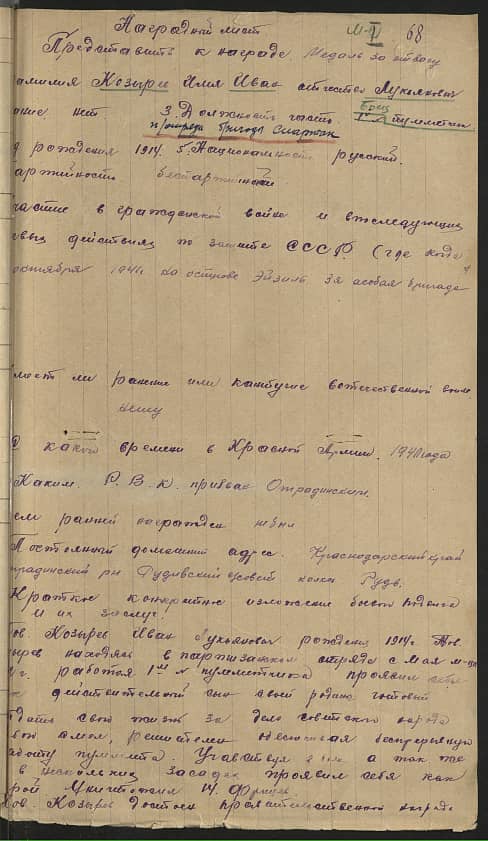 68
Наградной лист
Представить к награде Медаль за отвагу
амилия Козырев Имя Иван отчество Лукьянович
ание. нет 3. Должность часть. 1й № пулеметчик
бригады Спартак
д рождения 1914. 5. Национальность русский.
артийность беспартийный
частие в гражданской войне и впоследующих
евых действиях по защите СССР. (где когда
октября 1941 на острове Эйзиль 3я особая бригада
меет ли ранение или контузие вотечественной войне
С какого времени в Красной Армии. 1940 года
Каким. Р. В. К. призван Отрадинским.
ем раней награжден небыл
Постоянный домашний адрес. Краснодарский край
радинский рн
Краткое конкретное изложение боевого подвига
и их заслуг!
ов. Козырев Иван Лукьянович рождения 1914г. Тов.
ырев находясь в партизанском отряде с мая м-ца
г. работая 1ым № пулеметчика проявил себя
к действительный сын своей родины готовый
тдать свою жизнь за дело советского народа
решителен беспрерывную
аботу пулемета. Участвуя а так же
в нескольких засадах проявил себя как
рой Уничтожил 14. Фрицев.
ов. Козырев достоен правительственной награде